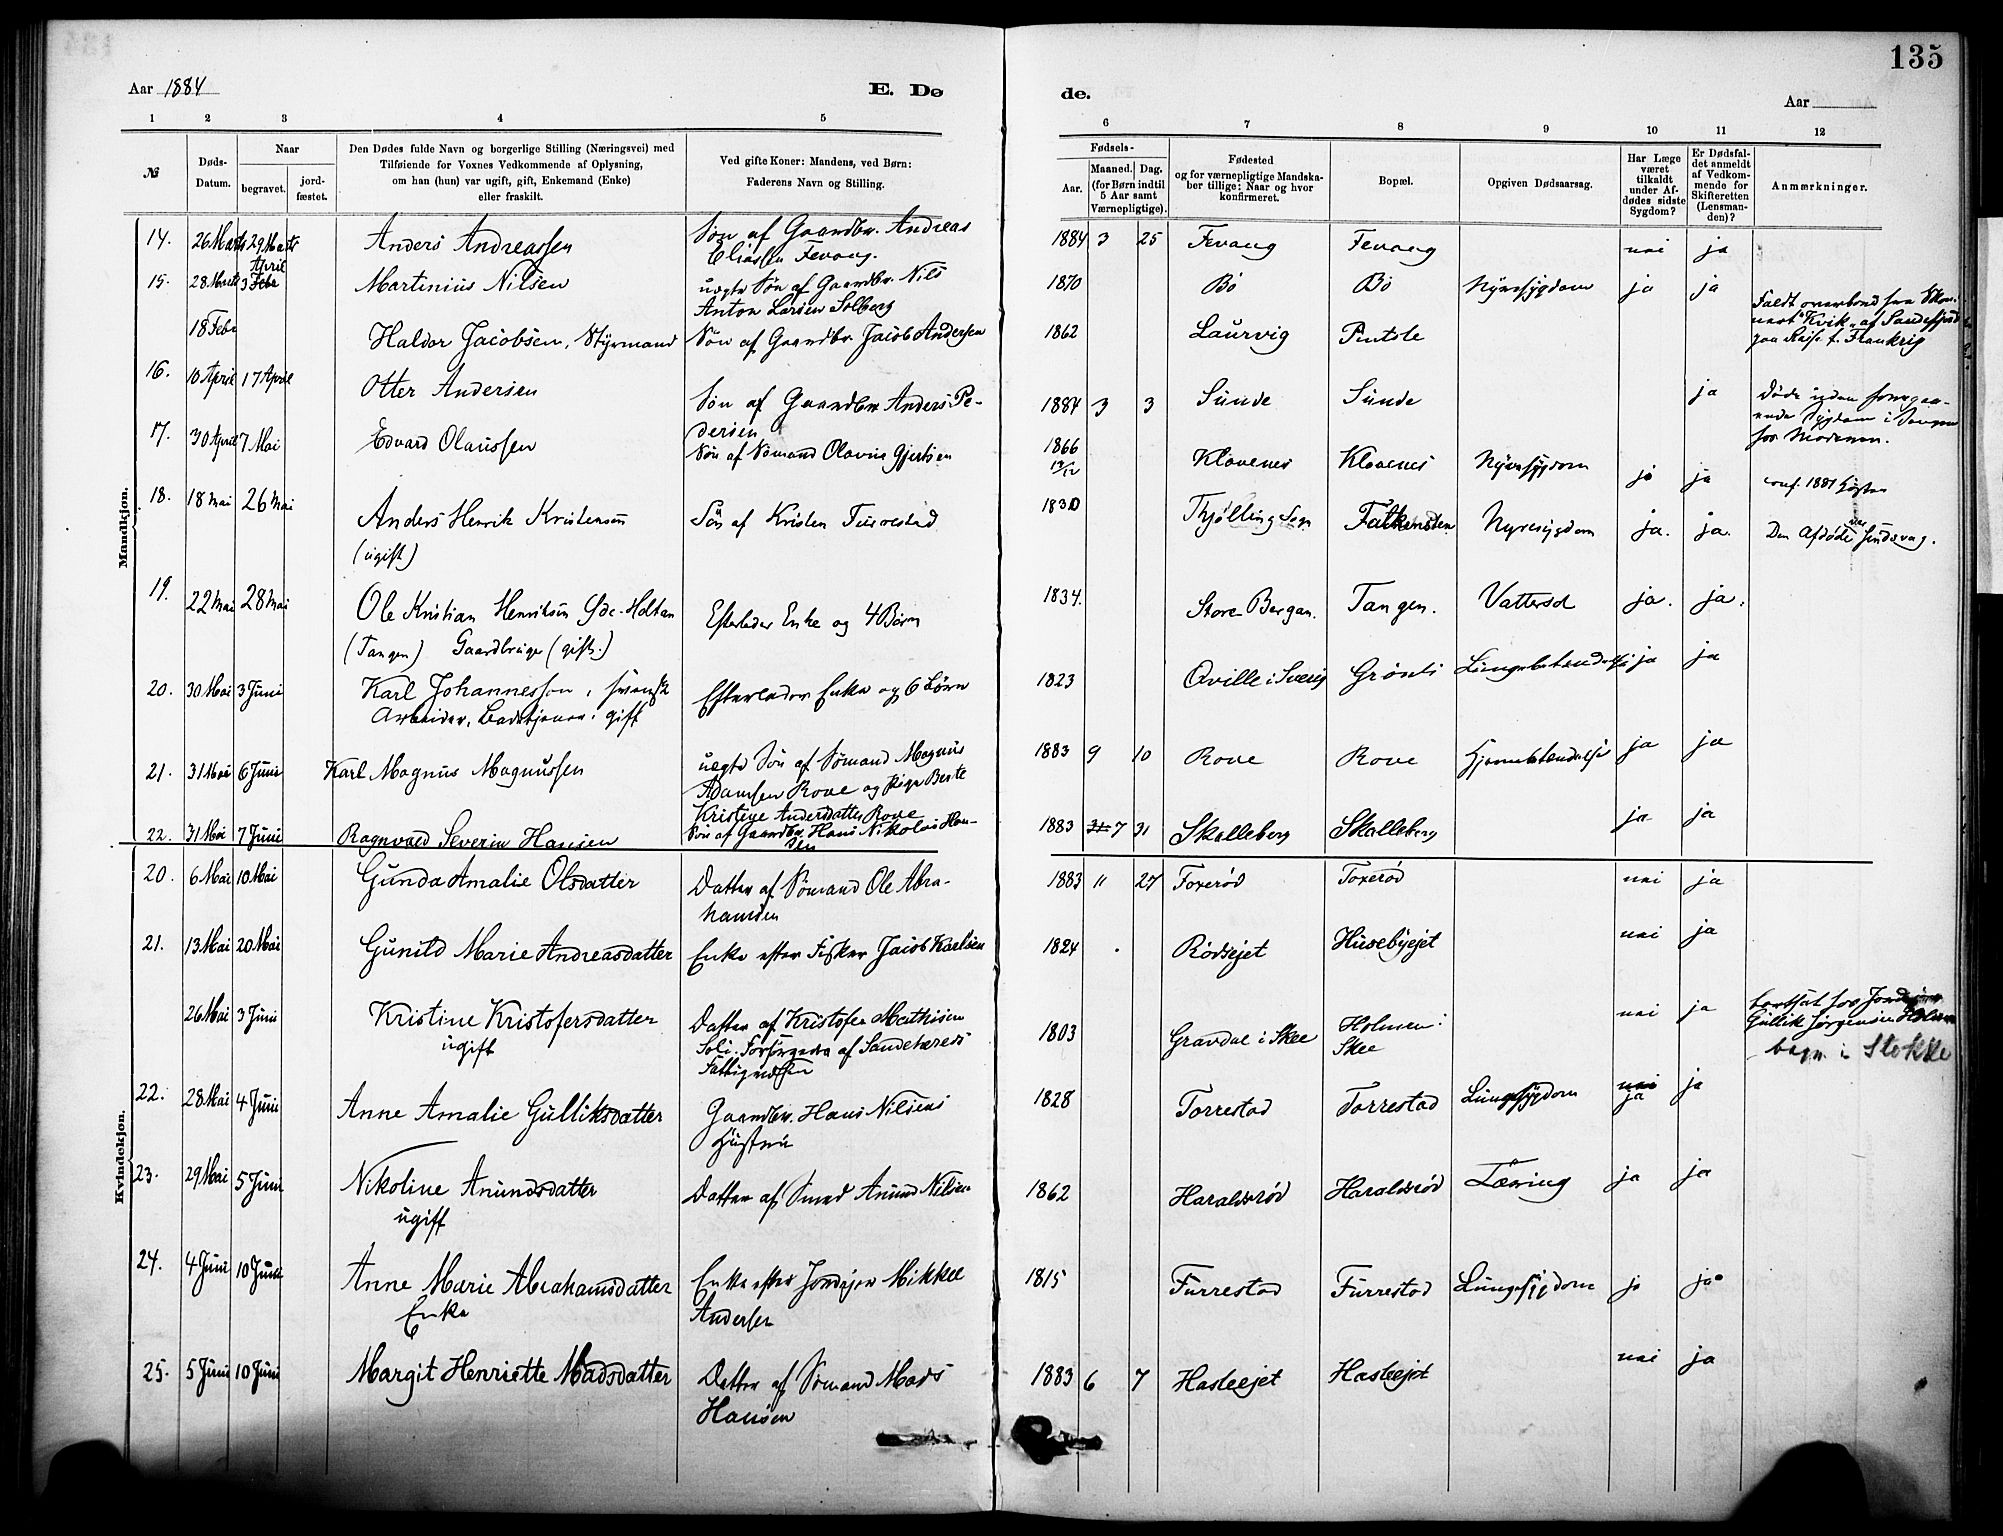 135
Aar 1884
E. Dø
de.
Aar
1 2 3 4 5 6 7 8 9 10 11 12
№
Døds-
Datum.
Naar
begravet.
jord-
fæstet.
Den Dødes fulde Navn og borgerlige Stilling (Næringsvei) med
Tilføiende for Voxnes Vedkommende af Oplysning,
om han (hun) var ugift, gift, Enkemand (Enke)
eller fraskilt.
Ved gifte Koner: Mandens, ved Børn:
Faderens Navn og Stilling.
Fødsels-
Aar.
Maaned. Dag.
(for Børn indtil
5 Aar samt
Værnepligtige).
Fødested
og for værnepligtige Mandska-
ber tillige: Naar og hvor
konfirmeret.
Bopæl.
Opgiven Dødsaarsag.
Har Læge
været
tilkaldt
under Af-
dødes sidste
Sygdom?
Er Dødsfal-
det anmeldt
af Vedkom-
mende for
Skifteretten
(Lensman-
den)?
Anmærkninger.
Mandkjøn.
14. 26 Marts 29 Marts Anders Andreassen Søn af Gaardbr. Andreas
Eliassen Fevang. 1884 3 25 Fevang Fevang nei ja
April
15. 28 Marts 3 Febr Martinius Nilsen uægte Søn af Gaardbr. Nils
Anton Larsen Solberg 1870 Bø Bø Nyresygdom ja ja
18 Febr Haldor Jacobsen, Styrmand Søn af Gaardbr. Jacob Andersen 1862 Laurvig Pintsle
Faldt overbord fra Skon-
nert "Kvik" af Sandefjord
paa Reise t. Frankrig
16. 10 April 17 April Otter Andersen Søn af Gaardbr Anders Pe-
dersen 1884 3 3 Sunde Sunde ja
Døde uden foregaa-
ende Sygdom i Sengen
hos Moderen.
17. 30 April 7 Mai Edvard Olaussen Søn af Sømand Olavus Gjertsen 1866
Klavenes Klavenes Nyresygdom ja ja
18. 18 Mai 26 Mai Anders Henrik Kristensen
(ugift) Søn af Kristen Furrestad 1830 Thjølling Sogn Falkensten Nyresygdom ja. ja.
Den Afdøde var Sindssvag.
19. 22 Mai 28 Mai Ole Kristian Henriksen Holtan
(Tangen) Gaardbruger (gift.) Efterlader Enke og 4 Børn 1834. Store Bergan. Tangen. Vattersot ja. ja.
20. 30 Mai 3 Juni Karl Johannesson, svensk
Arbeider, Badetjener, gift Efterlader Enke og 6 Børn 1823 Qville i Sverig Grønli Lungebetændelse ja ja
21. 31 Mai 6 Juni Karl Magnus Magnussen uægte Søn af Sømand Magnus
Adamsen Rove og Pige Berte
Kristine Andersdatter Rove 1883 9 10 Rove Rove Hjernebetændelse ja ja
22. 31 Mai 7 Juni Ragnvald Severin Hansen Søn af Gaardbr. Hans Nikolai Han-
sen 1883 31 7 31 Skalleberg Skalleberg ja ja
Kvindekjøn.
20. 6 Mai 10 Mai Gunda Amalie Olsdatter Datter af Sømand Ole Abra-
hamsen 1883 11 27 Toxerød Toxerød nei ja
21. 13 Mai 20 Mai Gunild Marie Andreasdatter Enke efter Fisker Jacob Karlsen 1824 Rødsejet Husebyejet nei ja
26 Mai 3 Juni Kristine Kristofersdatter
ugift Datter af Kristofer Mathisen
Soli. Forsørgedes af Sandeherreds
Fattigvæsen 1803 Gravdal i Skee Holmen i
Skee nei ja
bortsat hos
Gullik Jørgensen Holmen
begr. i Stokke
22. 28 Mai 4 Juni Anne Amalie Gulliksdatter Gaardbr. Hans Nilsens
Hustru 1828 Torrestad Torrestad Lungesygdom nei
ja ja
23. 29 Mai 5 Juni Nikoline Anundsdatter
ugift Datter af Smed Anund Nilsen 1862 Haraldsrød Haraldsrød Tæring ja ja
24. 4 Juni 10 Juni Anne Marie Abrahamsdatter
Enke Enke efter Jordejer Mikkel
Andersen 1815 Furrestad Furrestad Lungesygdom ja ja
25. 5 Juni 10 Juni Margit Henriette Madsdatter Datter af Sømand Mads
Hansen 1883 6 7 Hasleejet Hasleejet nei ja